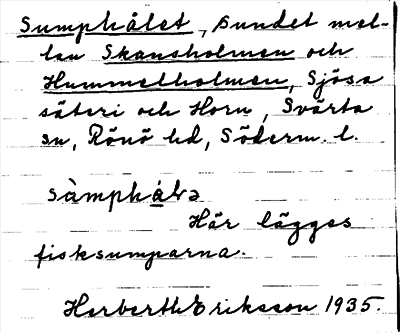 Sumphålet, sundet mel-
lan Skansholmen och
Hummelholmen, Sjösa
säteri och Horn, Svärta
sn, Rönö hd, Söderm. l.
Här lägges
fisksumparna.
Herberth Eriksson 1935.